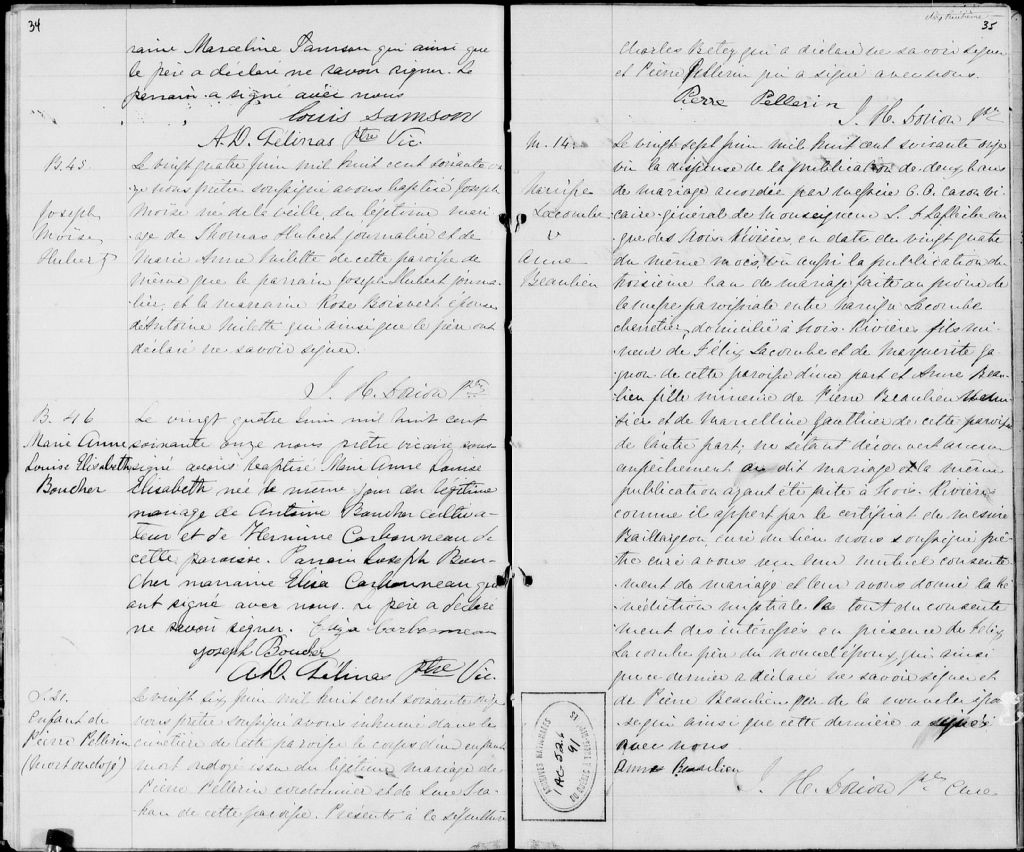 34
raine Marceline Samson qui ainsi que
le père a déclaré ne savoir signer. Le
parrain a signé avec nous
Louis Samson
A.D. Gélinas Ptre Vic.
B. 45
Joseph
Moïse
Hubert
Le vingt quatre juin mil huit cent soixante on-
ze nous prêtre soussigné avons baptisé Joseph
Moïse né de la veille du légitime mari-
age de Thomas Hubert journalier et de
Marie Anne Milette de cette paroisse de
même que le parrain Joseph Hubert journa-
lier, et la marraine Rose Boisvert épouse
d'Antoine Milette qui ainsi que le père ont
déclaré ne savoir signer.
J. H. Dorion Ptre
B. 46
Marie Anne
Louise Elisabeth
Boucher
Le vingt quatre Juin mil huit cent
soixante onze nous prêtre vicaire sous-
signé avons baptisé Marie Anne Louise
Elisabeth née le même jour du légitime
mariage de Antoine Boucher cultiva-
teur et de Hermine Carbonneau de
cette paroisse. Parrain Joseph Bou-
cher marraine Elisa Carbonneau qui
ont signé avec nous. Le père a déclaré
ne savoir signer. Eliza Carbonneau
Joseph Boucher
A.D. Gélinas Ptre Vic.
S. 31.
Enfant de
Pierre Pellerin
(mort ondoyé)
Le vingt six juin mil huit cent soixante onze
nous prêtre soussigné avons inhumé dans le
cimetière de cette paroisse le corps d'un enfant
mort ondoyé issu du légitime mariage de
Pierre Pellerin cordonnier et de
de cette paroisse. Présents à la sépulture
dix huitième
35
Charles qui a déclaré ne savoir signer
et Pierre Pellerin qui a signé avec nous.
Pierre Pellerin
J. H. Dorion Ptre
M. 14.
Narcisse
Lacombe
&
Anne
Beaulieu
Le vingt sept juin mil huit cent soixante onze
vu la dispense de la publication de deux bans
de mariage accordée par messire C. O. Caron vi-
caire-général de Monseigneur L. F. Laflèche évê-
que des Trois-Rivières, en date du vingt quatre
du même mois, vu aussi la publication du
troisième ban de mariage faite au prône de
la messe paroissiale entre Narcisse Lacombe
charretier, domicilié à Trois-Rivières, fils mi-
neur de Félix Lacombe et de Marguerite Ga-
gnon de cette paroisse d'une part et Anne Beau-
lieu fille mineure de Pierre Beaulieu menui-
sier et de Marcelline Gauthier de cette paroisse
de l'autre part; ne s'étant découvert aucun
empêchement au dit mariage et la même
publication ayant été faite à Trois-Rivières
comme il appert par le certificat de messire
Baillargeon, curé du lieu nous soussigné prê-
tre curé avons reçu leur mutuel consente-
ment de mariage et leur avons donné la bé-
nédiction nuptiale tout du consente-
ment des intéressés en présence de Félix
Lacombe père du nouvel époux, qui ainsi
que ce dernier a déclaré ne savoir signer et
de Pierre Beaulieu père de la nouvelle épouse
qui ainsi que cette dernière a signé
avec nous.
Anne Beaulieu
J. H. Dorion Ptre Curé
ARCHIVES NATIONALES
DU QUÉBEC